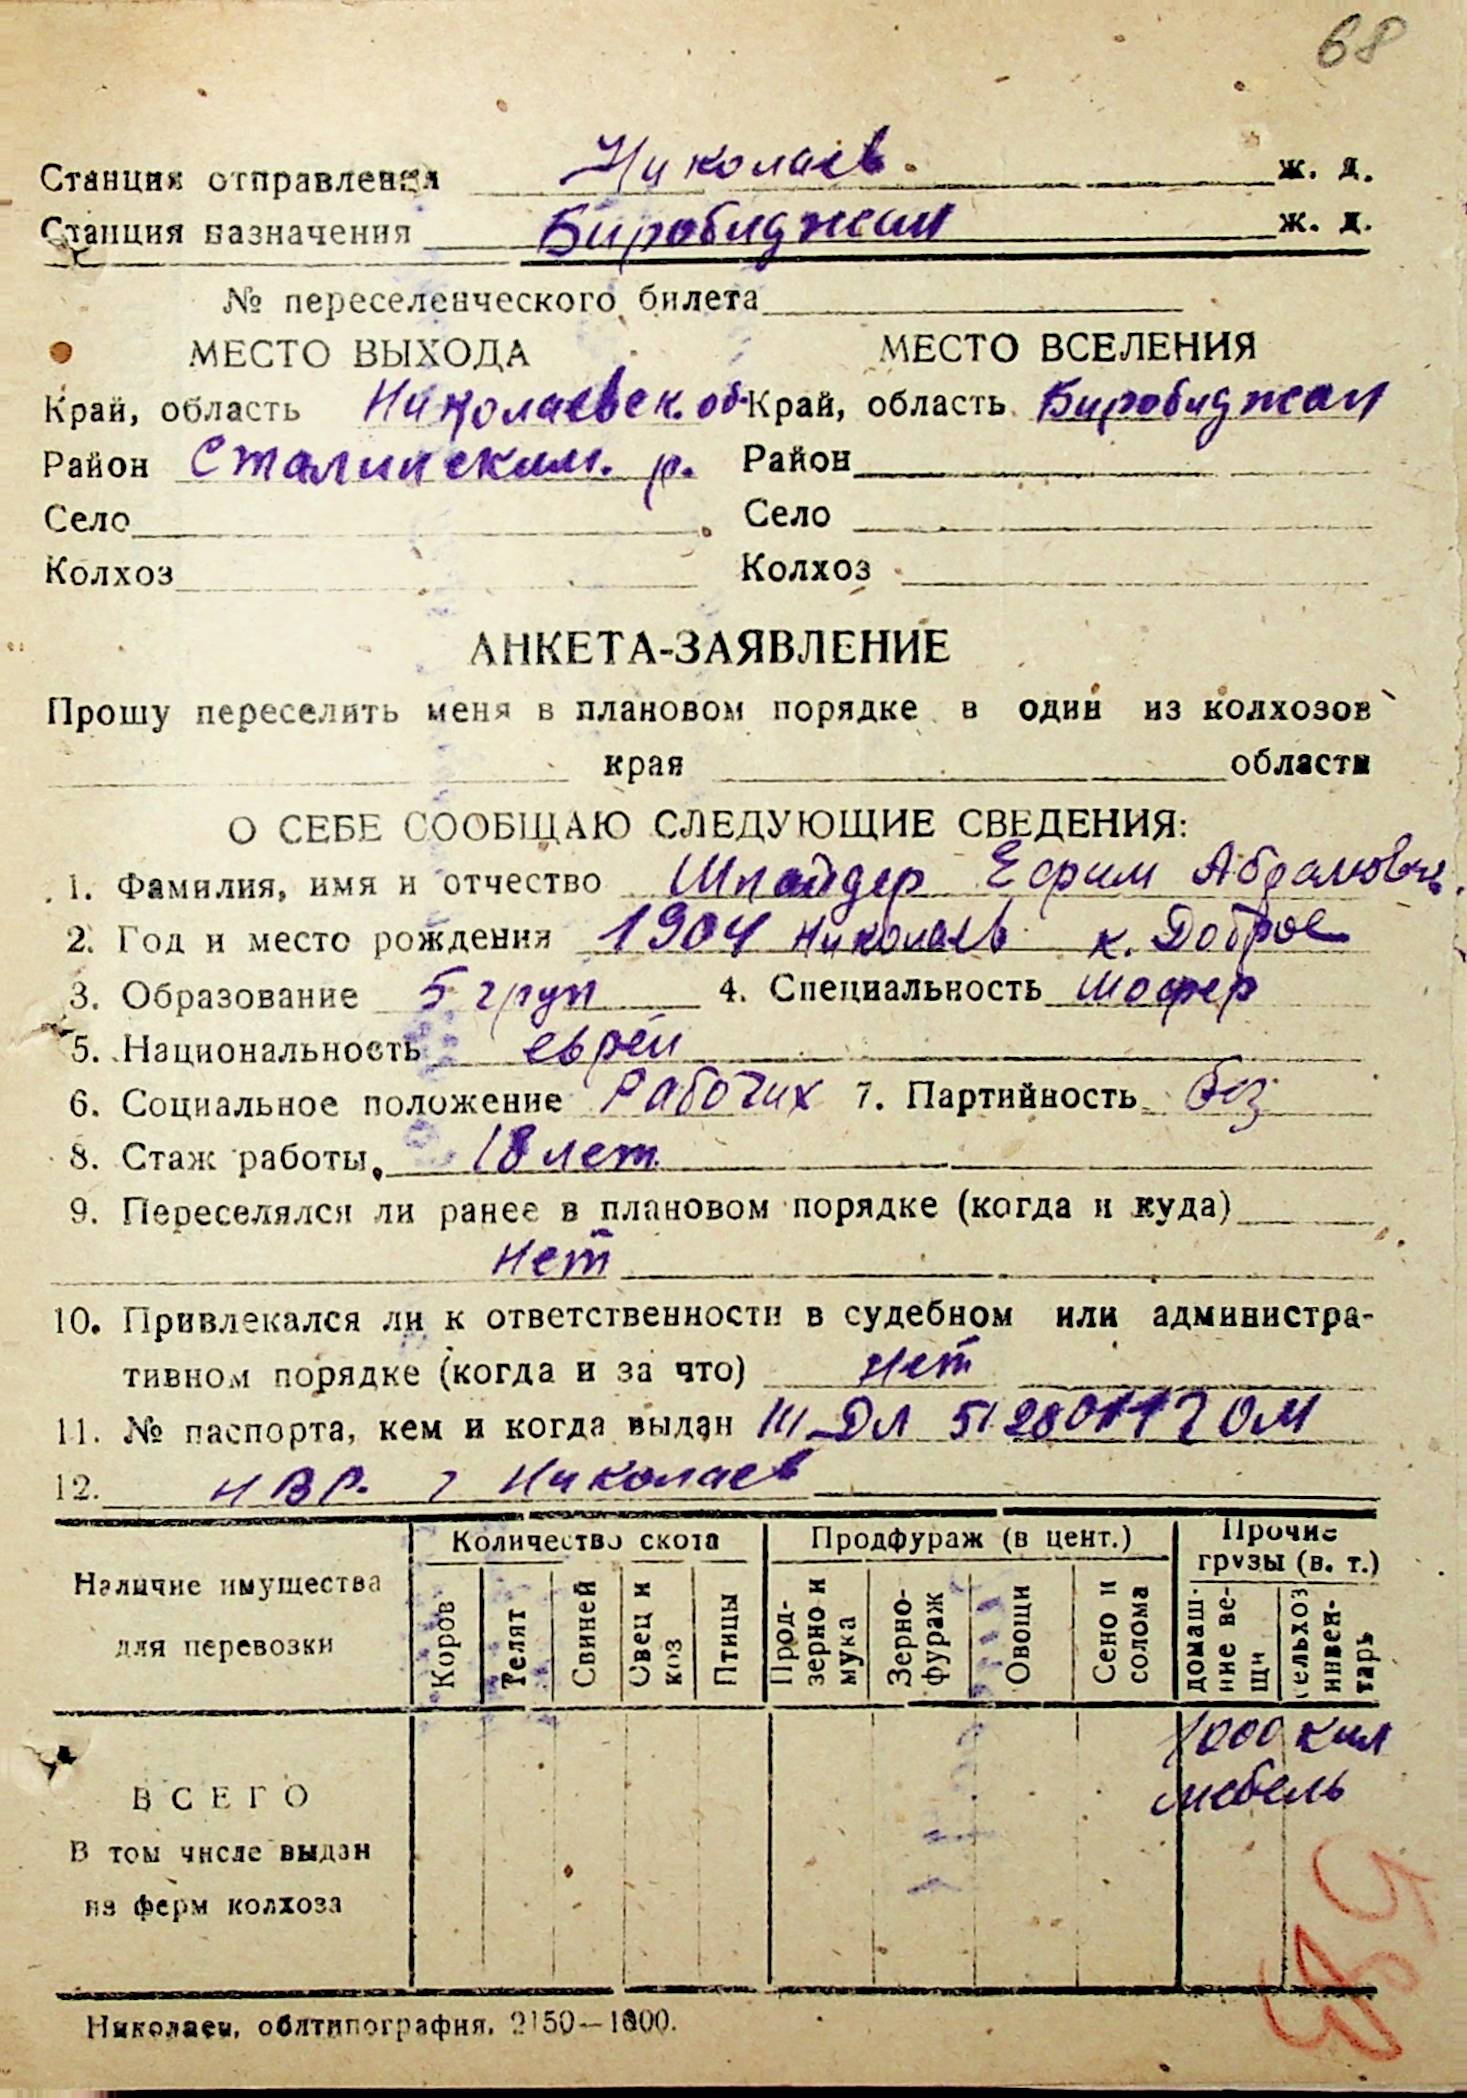 68
Станция отправления Николаев. ж. д.
Станция назначения Биробиджан ж. д.
№ переселенческого билета
МЕСТО ВЫХОДА МЕСТО ВСЕЛЕНИЯ
Край, область Николаевск. об. Край, область Биробиджан
Район Сталинским. р. Район
Село Село
Колхоз Колхоз
АНКЕТА-ЗАЯВЛЕНИЕ
Прошу переселить меня в плановом порядке в один из колхозов
края области
О СЕБЕ СООБЩАЮ СЛЕДУЮЩИЕ СВЕДЕНИЯ:
1. Фамилия, имя и отчество Шпайдер Ефрим Абрамович.
2. Год и место рождения 1904 Николаев к. Доброе
3. Образование 5 груп 4. Специальность шофер
5. Национальность еврей
6. Социальное положение Рабочих 7. Партийность без
8. Стаж работы 18 лет
9. Переселялся ли ранее в плановом порядке (когда и куда)
нет
10. Привлекался ли к ответственности в судебном или администра-
тивном порядке (когда и за что) нет
11. № паспорта, кем и когда выдан III-ДЛ ОМ
12. НВР. г Николаев
Наличие имущества для перевозки Количество скота Продфураж (в цент.) Прочие грузы (в. т.)
Коров Телят Свиней Овец и коз Птицы Прод-зерно и мука Зерно-фураж Овощи Сено и солома домаш-ние ве-щи сельхоз инвен-тарь
1000 кил
мебель
ВСЕГО
В том числе выдан
из ферм колхоза
583
Николаев, облтипография, 2150—1800.